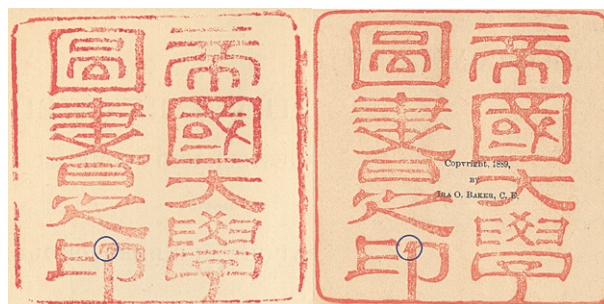 帝國大學
圖書之印
帝國大學
圖書之印
Copyright, 1889,
BY
IRA O. BAKER, C. E.